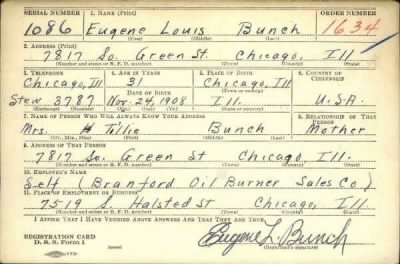 SERIAL NUMBER 1. NAME (Print) ORDER NUMBER
1086 Eugene Louis Bunch 1634
(First) (Middle) (Last)
2. ADDRESS (Print)
7817 So. Green St. Chicago, Ill
(Number and street or R. F. D. number) (Town) (County) (State)
3. TELEPHONE 4. AGE IN YEARS 5. PLACE OF BIRTH 6. COUNTRY OF CITIZENSHIP
Chicago, Ill 31 Chicago, Ill
DATE OF BIRTH (Town or county)
Stew 3787 Nov. 24, 1908 Ill. U.S.A.
(Exchange) (Number) (Mo.) (Day) (Yr.) (State or country)
7. NAME OF PERSON WHO WILL ALWAYS KNOW YOUR ADDRESS 8. RELATIONSHIP OF THAT PERSON
Mrs. Tillie Bunch Mother
(Mr., Mrs., Miss) (First) (Middle) (Last)
9. ADDRESS OF THAT PERSON
7817 So. Green St Chicago, Ill.
(Number and street or R. F. D. number) (Town) (County) (State)
10. EMPLOYER'S NAME
Self (Branford Oil Burner Sales Co)
11. PLACE OF EMPLOYMENT OR BUSINESS
7519 S. Halsted St Chicago, Ill.
(Number and street or R. F. D. number) (Town) (County) (State)
I AFFIRM THAT I HAVE VERIFIED ABOVE ANSWERS AND THAT THEY ARE TRUE.
REGISTRATION CARD
D. S. S. Form 1 Eugene L. Bunch
(Registrant's signature)